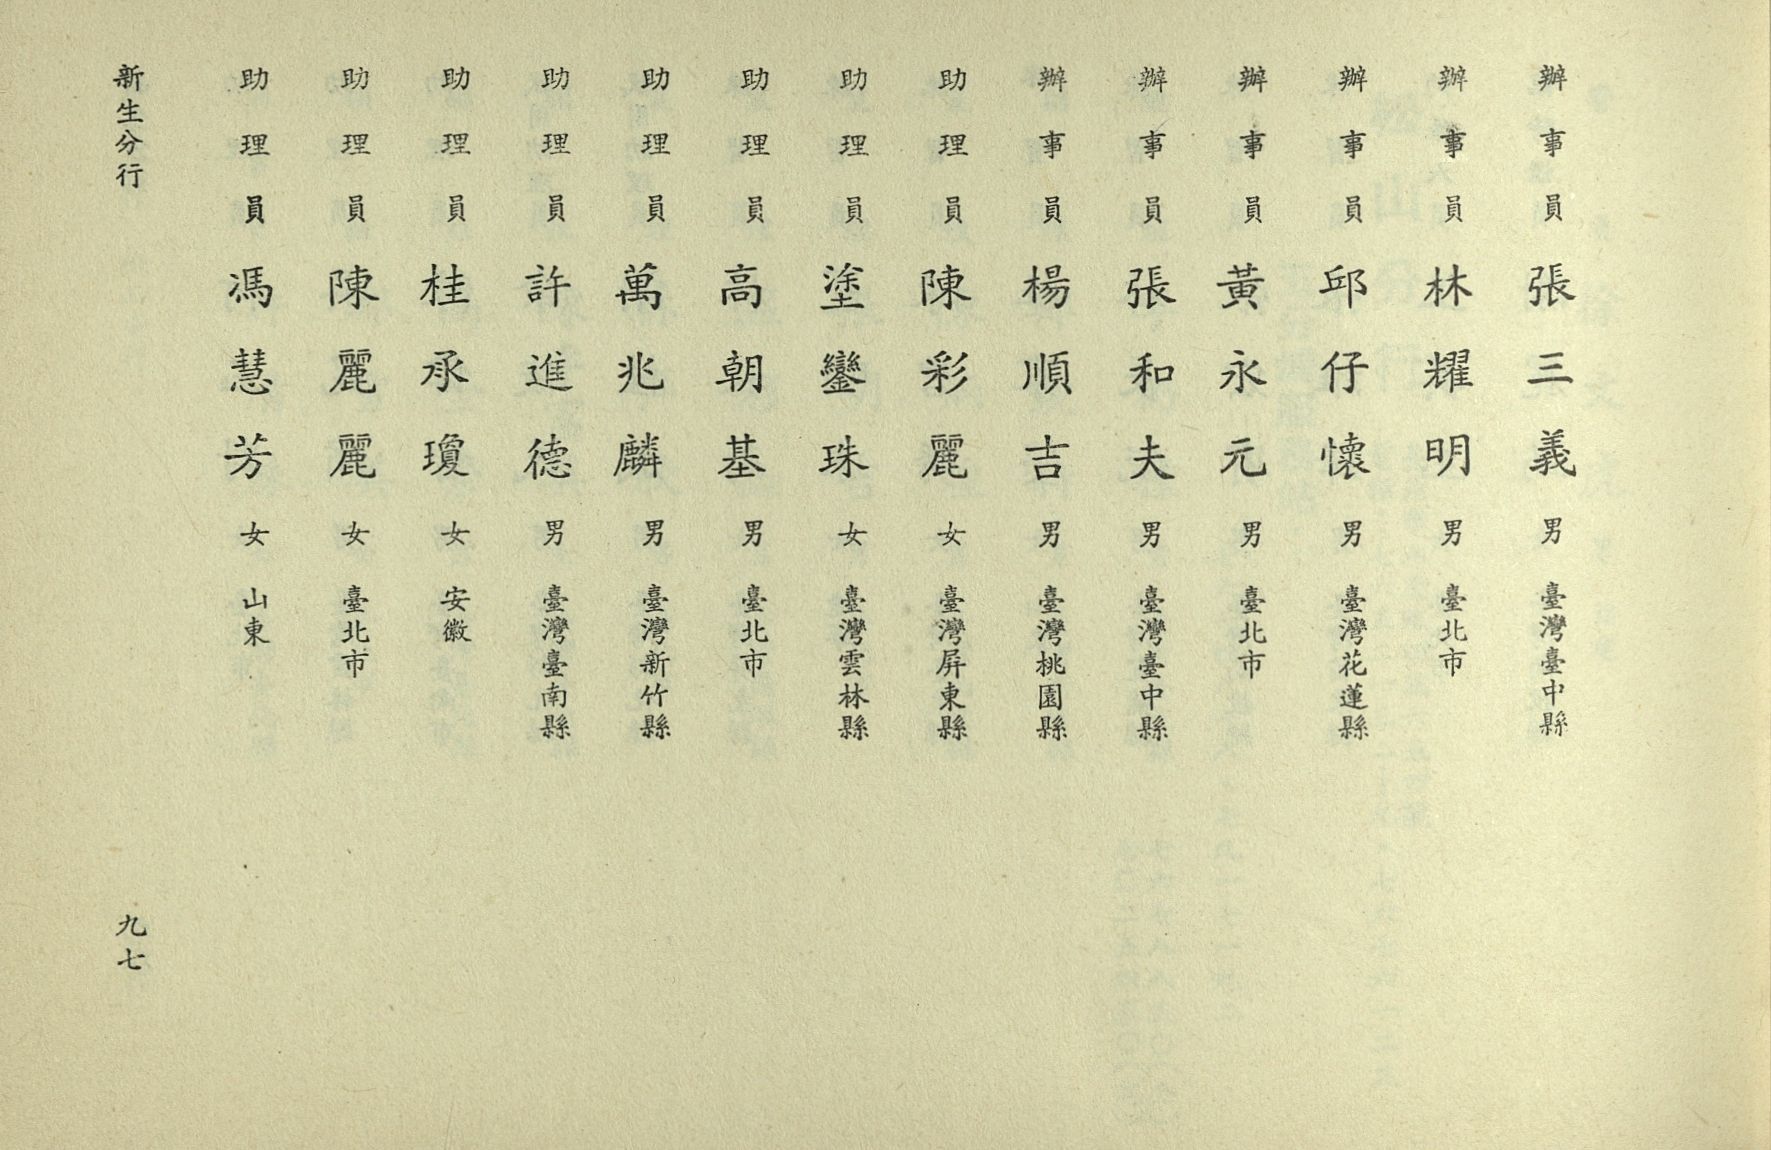 辦事員張三義男臺灣臺中縣
辦事員林耀明男臺北市
辦事員邱仔懷男臺灣花蓮縣
辦事員黃永元男臺北市
辦事員張和夫男臺灣臺中縣
辦事員楊順吉男臺灣桃園縣
助理員陳彩麗女臺灣屏東縣
助理員塗鑾珠女臺灣雲林縣
助理員高朝基男臺北市
助理員萬兆麟男臺灣新竹縣
助理員許進德男臺灣臺南縣
助理員桂承瓊女安徽
助理員陳麗麗女臺北市
助理員馮慧芳女山東
新生分行
九七